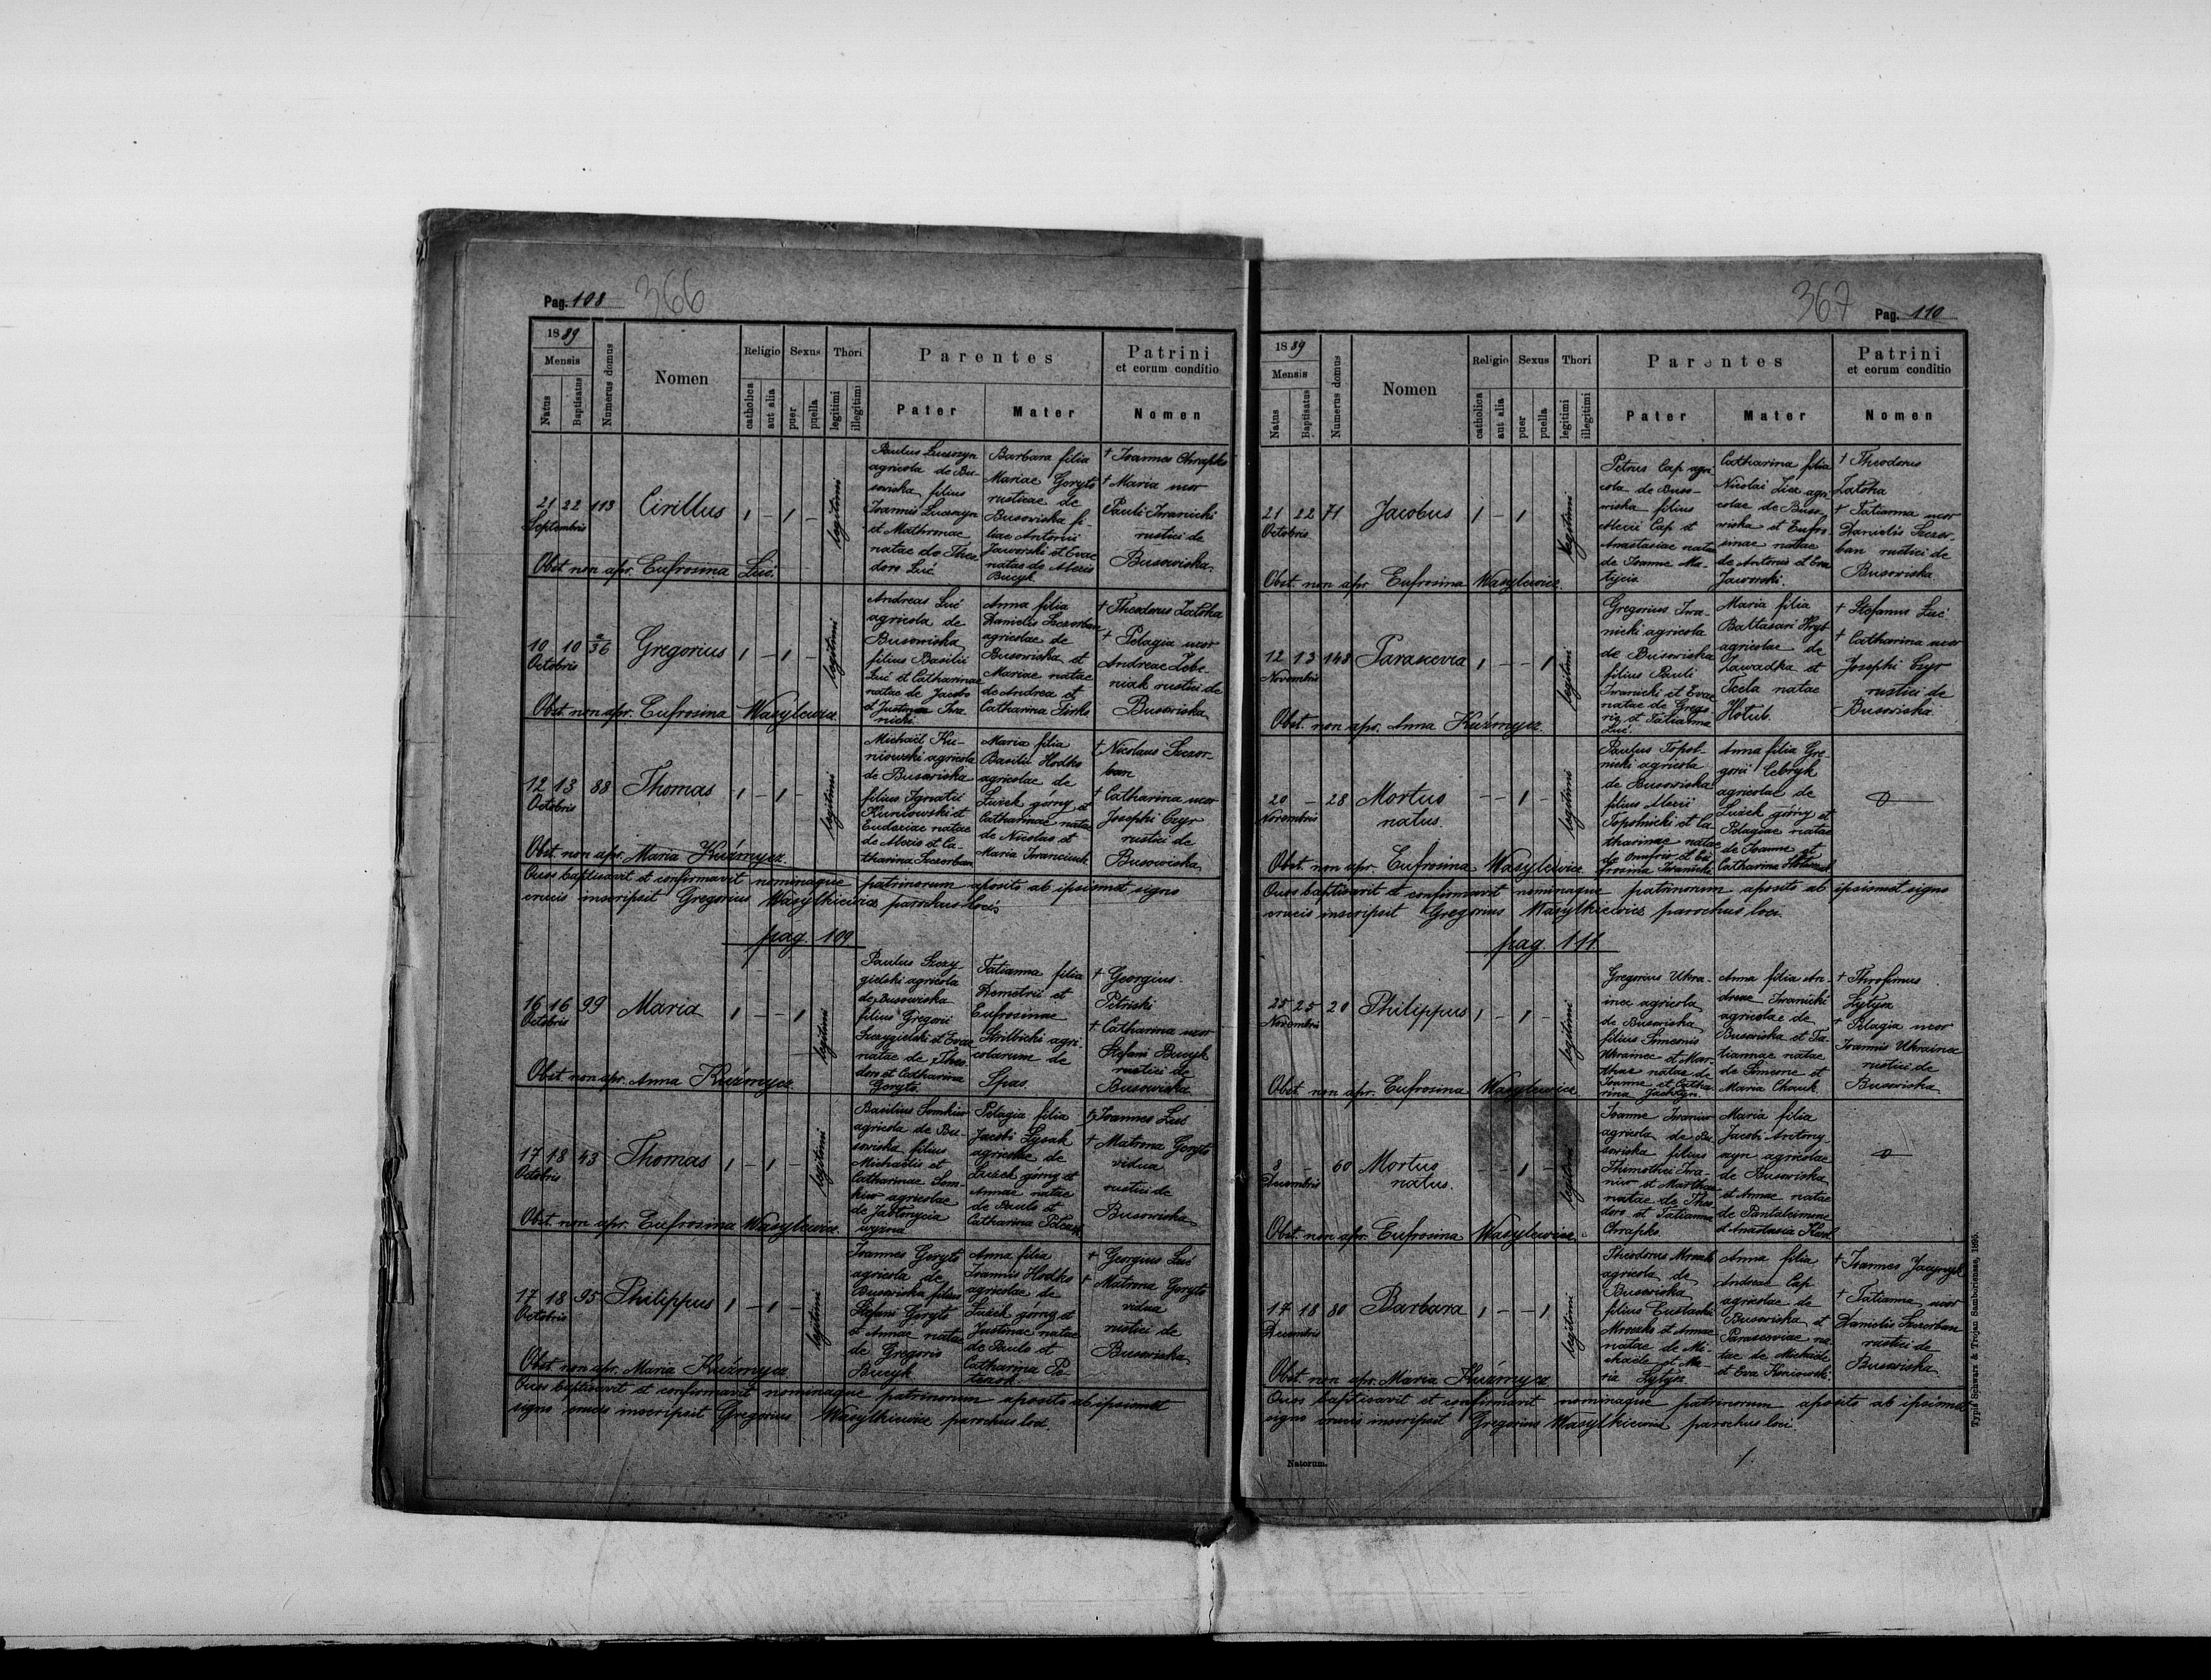 Pag. 108
366
1889
Mensis
Natus
Baptisatus
Numerus domus
Nomen
Religio
catholica
aut alia
Sexus
puer
puella
Thori
legitimi
illegitimi
Parentes
Pater
Mater
Patrini
et eorum conditio
Nomen
21 22 113 Cirillus 1 - 1 - legitimi
Septembris
Paulus Lucszyn
agricola de Bu-
sowiska filius
Joannis Lucszyn
et Mathronae
natae de Theo
doro Luć
Barbara filia
Mariae Goryto
rusticae de
Busowiska fi-
liae Antonii
Jaworski et Evae
natae de Alexio
Bucyk
† Joannes Chrapko
† Maria uxor
Pauli Iwanicki
rustici de
Busowiska.
Obst. non apr. Eufrosina Luć.
10 10 a/36 Gregorius 1 - 1 - legitimi
Octobris
Andreas Luć
agricola de
Busowiska
filius Basilii
Luć et Catharinae
natae de Jacobo
et Justyna Iwa
nicki.
Anna filia
Danielis Szczorban
agricolae de
Busowiska et
Mariae natae
de Andrea et
Catharina Finko
† Theodorus Zatoka
† Pelagia uxor
Andreae Zebe-
niak rustici de
Busowiska
Obst. non apr. Eufrosina Wasylewicz.
12 13 88 Thomas 1 - 1 - legitimi
Octobris
Michaël Ku-
niowski agricola
de Busowiska
filius Ignatii
Kuniowski et
Eudoxiae natae
de Alexio et Ca-
tharina Szczorban
Maria filia
Basilii Hodko
agricolae de
Łużek górny et
Catharinae natae
de Nicolao et
Maria Iwanciuch
† Nicolaus Szczor-
ban
† Catharina uxor
Josephi Czyr
rustici de
Busowiska
Obst. non apr. Maria Kuźmycz.
Quos baptisavit et confirmavit nominaque patrinorum aposito ab ipsismet signo
crucis inscripsit Gregorius Wasylkiewicz parochus loci.
pag. 109
16 16 99 Maria 1 - - 1 legitimi
Octobris
Paulus Szczy
gielski agricola
de Busowiska
filius Gregorii
Szczygielski et Evae
natae de Theo
doro et Catharina
Goryto.
Tatianna filia
Demetrii et
Eufrosinae
Strilbicki agri-
colarum de
Spas.
† Georgius
Petriski
† Catharina uxor
Stefani Bucyk
rustici de
Busowiska
Obst. non apr. Anna Kuźmycz.
17 18 43 Thomas 1 - 1 - legitimi
Octobris
Basilius Somkiw
agricola de Bu-
sowiska filius
Michaelis et
Catharinae Som-
kiw agricolae
de Jabłonycia
wyżna
Pelagia filia
Jacobi Lysak
agricolae de
Łużek górny et
Annae natae
de Paulo et
Catharina
† Joannes Luć
† Matrona Goryto
vidua
rustici de
Busowiska
Obst. non apr. Eufrosina Wasylewicz.
17 18 95 Philippus 1 - 1 - legitimi
Octobris
Joannes Goryto
agricola de
Busowiska filius
Stefani Goryto
et Annae natae
de Gregorio
Bucyk
Anna filia
Joannis Hodko
agricolae de
Łużek górny et
Justinae natae
de Paulo et
Catharina
† Georgius Luć
† Matrona Goryto
vidua
rustici de
Busowiska
Obst. non apr. Maria Kuźmycz
Quos baptisavit et confirmavit nominaque patrinorum aposito ab ipsismet
signo crucis inscripsit Gregorius Wasylkiewicz parochus loci.
367
Pag. 110
1889
Mensis
Natus
Baptisatus
Numerus domus
Nomen
Religio
catholica
aut alia
Sexus
puer
puella
Thori
legitimi
illegitimi
Parentes
Pater
Mater
Patrini
et eorum conditio
Nomen
21 22 71 Jacobus 1 - 1 legitimi
Octobris
Petrus Cap agri
cola de Buso-
wiska filius
Alexii Cap et
Anastasiae natae
de Joanne Ma-
tyjcio
Catharina filia
Nicolai agri-
colae de Buso-
wiska et Eufro
sinae natae
de Antonio et Eva
Jaworski.
† Theodorus
Zatoka
† Tatianna uxor
Danielis Szczor-
ban rustici de
Busowiska
Obst. non apr. Eufrosina Wasylewicz.
12 13 148 Parascevia 1 - - 1 legitimi
Novembris
Gregorius Iwa-
nicki agricola
de Busowiska
filius Pauli
Iwanicki et Evae
natae de Grego-
rio et Tatianna
Luć.
Maria filia
Baltasari
agricolae de
Zawadka et
Tecla natae
Hołub.
† Stefanus Luć
† Catharina uxor
Josephi Czyr
rustici de
Busowiska
Obst. non apr. Anna Kuźmycz.
20 - 28 Mortus - - 1 - legitimi
Novembris natus.
Paulus Topol-
nicki agricola
de Busowiska
filius Alexii
Topolnicki et Ca-
tharinae natae
de Onufrio et Eu
frosina Iwanicki
Anna filia Gre-
gorii Cebryk
agricolae de
Łużek górny et
Pelagiae natae
de Joanne et
Catharina
Obst. non apr. Eufrosina Wasylewicz
Quos baptisavit et confirmavit nominaque patrinorum aposito ab ipsismet signo
crucis inscripsit Gregorius Wasylkiewicz parochus loci.
pag. 111.
25 25 20 Philippus 1 - 1 - legitimi
Novembris
Gregorius Ukra-
inec agricola
de Busowiska
filius Simeonis
Ukrainec et Mar-
thae natae de
Joanne et Catha-
rina
Anna filia An-
dreae Iwanicki
agricolae de
Busowiska et Ta-
tiannae natae
de Simeone et
Maria
† Throfimus
Łytyn
† Pelagia uxor
Joannis Ukrainec
rustici de
Busowiska
Obst. non apr. Eufrosina Wasylewicz
8 - 60 Mortus - - 1 - legitimi
Decembris natus.
Joanne Iwaniw
agricola de Bu-
sowiska filius
Thimothei Iwa-
niw et Marthae
natae de Theo
doro et Tatianna
Chrapko.
Maria filia
Jacobi Antony-
szyn agricolae
de Busowiska
et Annae natae
de Pantaleimone
et Anastasia
Obst. non apr. Eufrosina Wasylewicz.
17 18 80 Barbara 1 - - 1 legitimi
Decembris
Theodorus Mroczko
agricola de
Busowiska
filius Eustachi
Mroczko et Annae
natae de Mi-
chaele et Ma-
ria Łytyn
Anna filia
Andreae Cap
agricolae de
Busowiska et
Parasceviae na
tae de Michaele
et Eva Koniowski.
† Joannes
† Tatianna uxor
Danielis Szczorban
rustici de
Busowiska
Obst. non apr. Maria Kuźmycz
Quos baptisavit et confirmavit nominaque patrinorum aposito ab ipsismet
signo crucis inscripsit Gregorius Wasylkiewicz parochus loci.
Natorum.
Typis Schwarz & Trojan Samboriense, 1895.